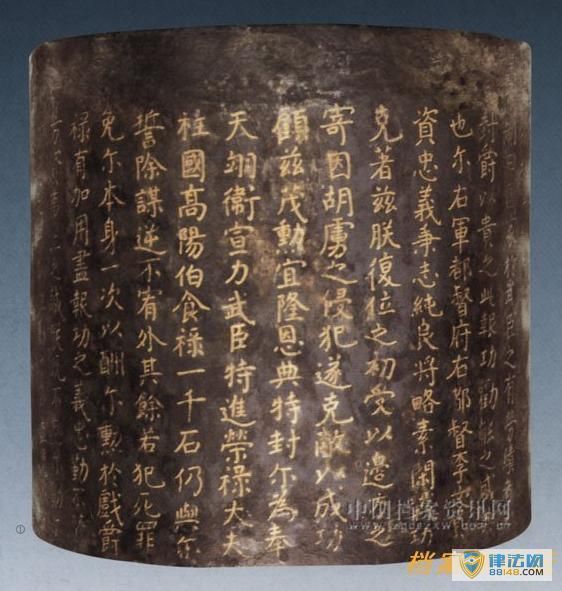 於武臣之有勞績者
封爵以貴之此報功勸能之
也尔右軍都督府右都督李
資忠義秉志純良將略素閑 功
克著兹朕復位之初受以邊方之
寄因胡虜之侵犯遂克敵以成功
顧兹茂勳宜隆恩典特封尔為奉
天翊衛宣力武臣特進榮禄大夫
柱國高陽伯食禄一千石仍與尔
誓除謀逆不宥外其餘若犯死罪
免尔本身一次以酬尔勳於戲爵
禄有加用盡報功之義忠勤不
①
中国档案资讯网
档案
律法网
88148.com